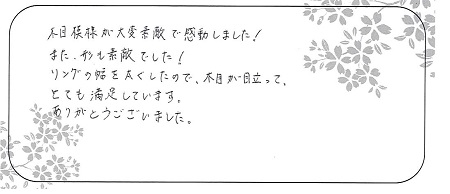 木目模様が大変素敵で感動しました！
また、形も素敵でした！
リングの幅を太くしたので、木目が目立って、
とても満足しています。
ありがとうございました。